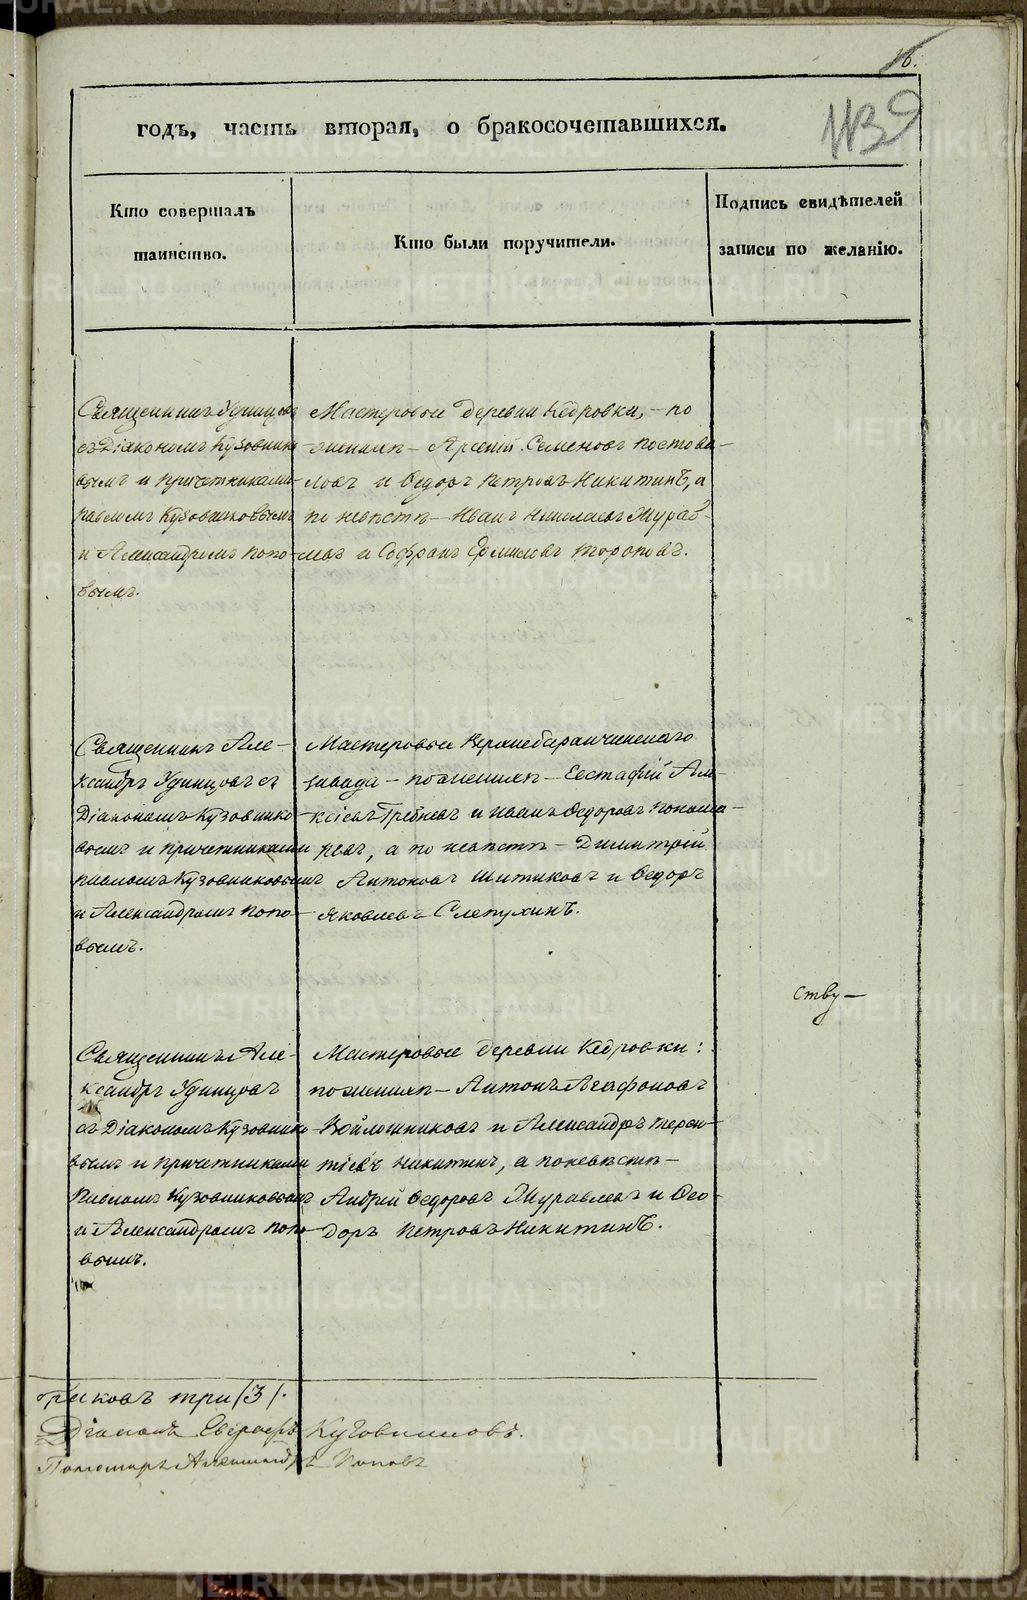 16.
1139
годъ, часть вторая, о бракосочетавшихся.
Кто совершалъ
таинство.
Кто были поручители.
Подпись свидѣтелей
записи по желанію.
Священникъ Удинцовъ
съ Діакономъ Кузовнико-
вымъ и причетниками
Павломъ Кузовниковымъ
и Александромъ Попо-
вымъ.
Мастеровые деревни Кедровки, - по
женихѣ - Арсеній Семеновъ Постова-
ловъ и Ѳедоръ Петровъ Никитинъ, а
по невѣстѣ - Иванъ Николаевъ Журав-
левъ и Софронъ Ермиловъ Тороповъ.
Священникъ Але-
ксандръ Удинцовъ съ
Діакономъ Кузовнико-
вымъ и причетниками
Павломъ Кузовниковымъ
и Александромъ Попо-
вымъ.
Мастеровые Верхнебаранчинскаго
завода - по женихѣ - Евстафій Але-
ксѣевъ Гребневъ и Иванъ Ѳедоровъ Понома-
ревъ, а по невѣстѣ - Димитрій
Антоновъ Шитиковъ и Ѳедоръ
Яковлевъ Слепухинъ.
ству-
Священникъ Але-
ксандръ Удинцовъ
съ Діакономъ Кузовнико-
вымъ и причетниками
Павломъ Кузовниковымъ
и Александромъ Попо-
вымъ.
Мастеровые деревни Кедровки:
по женихѣ - Антонъ Агафоновъ
Войлошниковъ и Александръ Терен-
тіевъ Никитинъ, а по невѣстѣ -
Андрей Ѳедоровъ Журавлевъ и Ѳео-
доръ Петровъ Никитинъ.
браковъ три /3/.
Діаконъ Кузовниковъ.
Пономарь Александръ Поповъ
METRIKI.GASO-URAL.RU